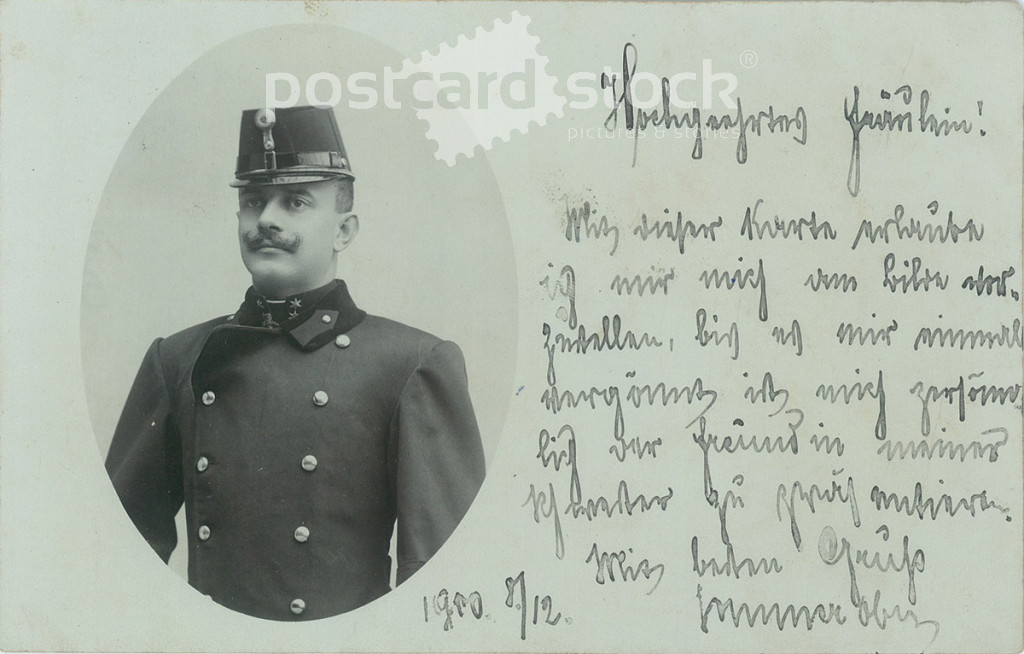 postcard stock®
pictures & stories
Hochgeehrtes Fräulein!
Mit dieser Karte erlaube
ich mir mich am Bilde vor-
zustellen, bis es mir einmal
vergönnt ist, mich persön-
lich der Freundin meiner
Schwester zu präsentieren.
Mit besten Gruß
1900. 8/12.